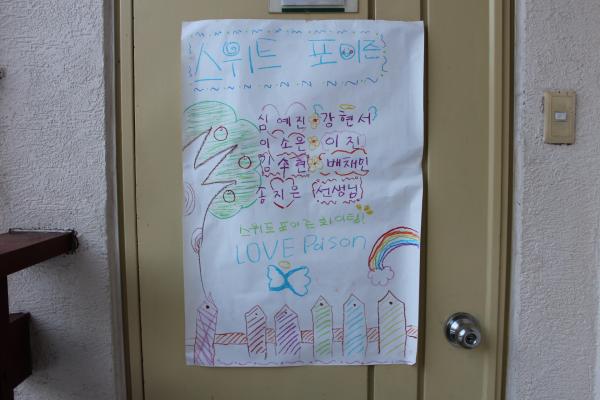 스위트 포이즌
심예진 강현서
이소은 이진
김수현 배재민
송지은 선생님
스위트 포이즌 화이팅!
LOVE Poison